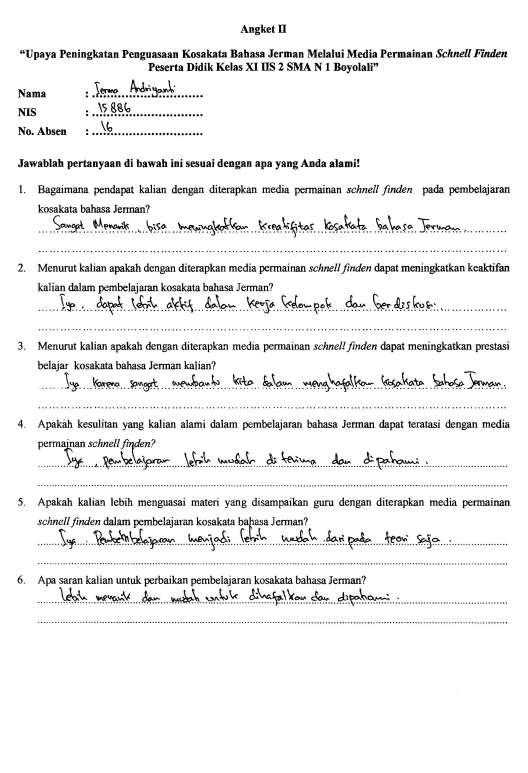 Angket II
“Upaya Peningkatan Penguasaan Kosakata Bahasa Jerman Melalui Media Permainan Schnell Finden
Peserta Didik Kelas XI IIS 2 SMA N 1 Boyolali”
Nama : Andriyanti
NIS : 15886
No. Absen : 16
Jawablah pertanyaan di bawah ini sesuai dengan apa yang Anda alami!
1. Bagaimana pendapat kalian dengan diterapkan media permainan schnell finden pada pembelajaran
kosakata bahasa Jerman?
Sangat Menarik, bisa meningkatkan kreatifitas kosakata bahasa Jerman.
2. Menurut kalian apakah dengan diterapkan media permainan schnell finden dapat meningkatkan keaktifan
kalian dalam pembelajaran kosakata bahasa Jerman?
Iya, dapat lebih aktif dalam kerja kelompok dan berdiskusi.
3. Menurut kalian apakah dengan diterapkan media permainan schnell finden dapat meningkatkan prestasi
belajar kosakata bahasa Jerman kalian?
Iya karena sangat membantu kita dalam menghafalkan kosakata bahasa Jerman.
4. Apakah kesulitan yang kalian alami dalam pembelajaran bahasa Jerman dapat teratasi dengan media
permainan schnell finden?
Iya, pembelajaran lebih mudah di terima dan dipahami.
5. Apakah kalian lebih menguasai materi yang disampaikan guru dengan diterapkan media permainan
schnell finden dalam pembelajaran kosakata bahasa Jerman?
Iya. menjadi lebih mudah daripada teori saja.
6. Apa saran kalian untuk perbaikan pembelajaran kosakata bahasa Jerman?
lebih menarik dan mudah untuk dihafalkan dan dipahami.